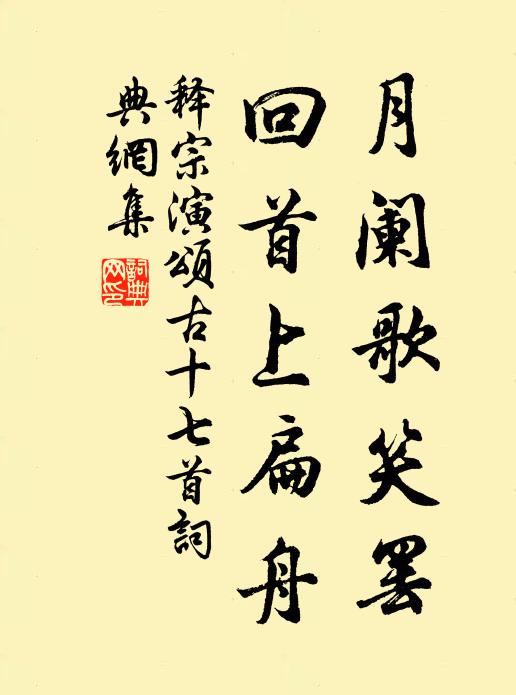 月阑歌笑罢
回首上扁舟
释宗演颂古十七首詞
典網集
詞典网印